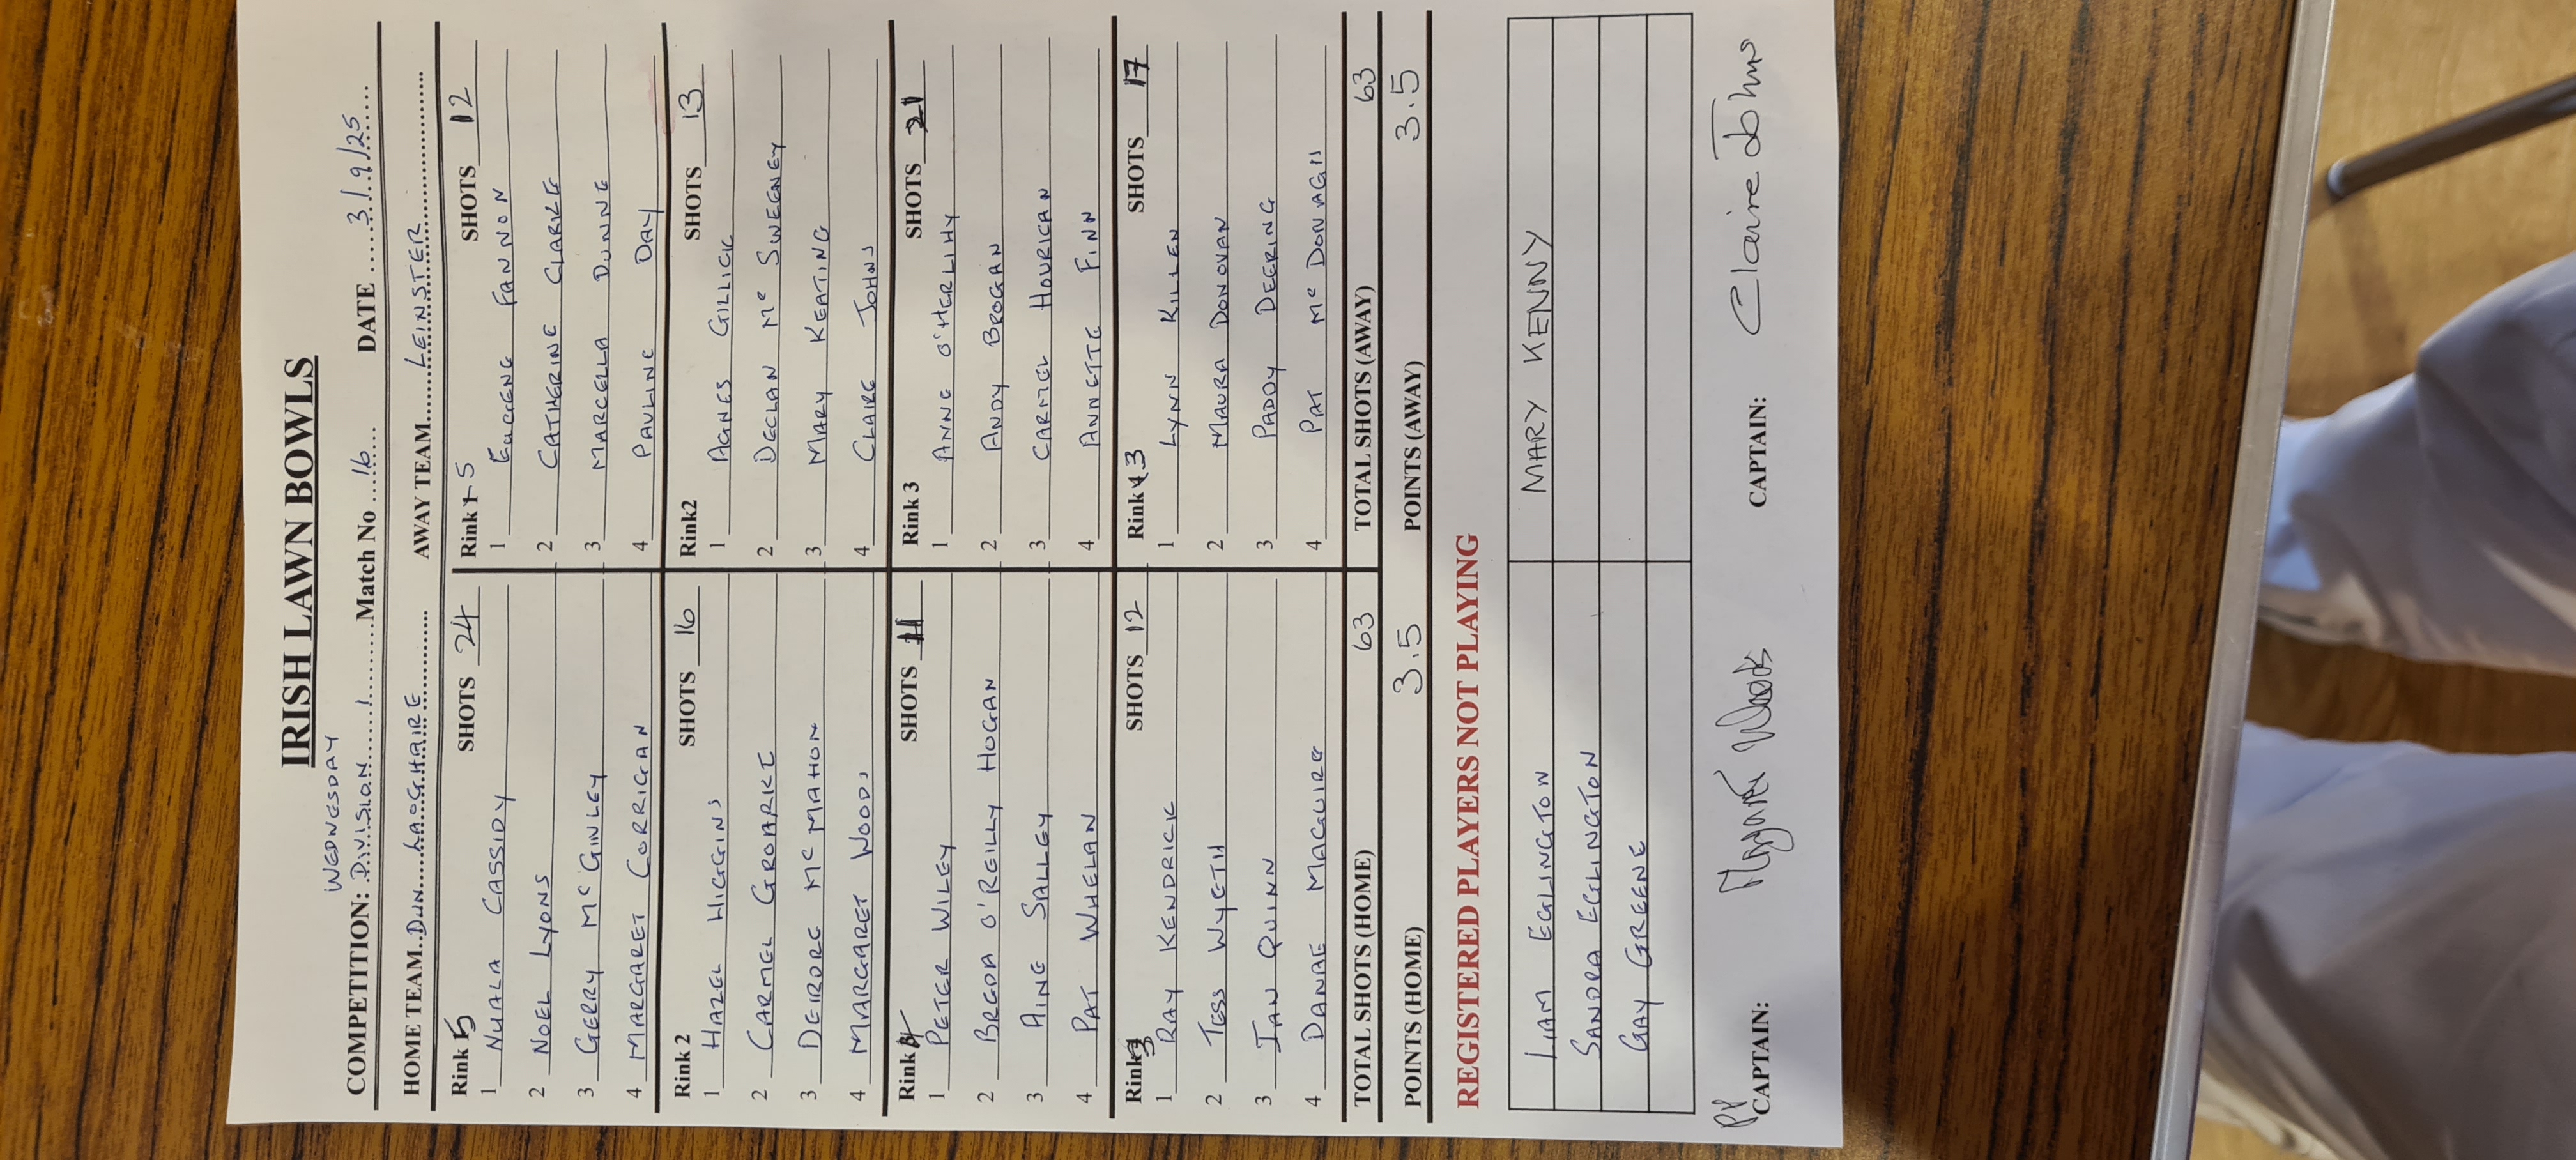 IRISH LAWN BOWLS
WEDNESDAY
COMPETITION: DIVISION 1 Match No 16 DATE 3/9/25
HOME TEAM DUN LAOGHAIRE AWAY TEAM LEINSTER
Rink 5 SHOTS 24 Rink 5 SHOTS 12
1 NUALA CASSIDY 1 EUGENE FANNON
2 NOEL LYONS 2 CATHERINE CLARKE
3 GERRY Mc GINLEY 3 MARCELLA DUNNE
4 MARGARET CORRIGAN 4 PAULINE DAY
Rink 2 SHOTS 16 Rink2 SHOTS 13
1 HAZEL HIGGINS 1 AGNES GILLICK
2 CARMEL GROARKE 2 DECLAN Mc SWEENEY
3 DEIRDRE Mc MAHON 3 MARY KEATING
4 MARGARET WOODS 4 CLAIRE JOHNS
Rink SHOTS 11 Rink 3 SHOTS 21
1 PETER WILEY 1 ANNE O'HERLIHY
2 BREDA O'REILLY HOGAN 2 ANDY BROGAN
3 AINE SALLEY 3 CARMEL HOURICAN
4 PAT WHELAN 4 ANNETTE FINN
Rink 3 SHOTS 12 Rink 3 SHOTS 17
1 RAY KENDRICK 1 LYNN KILLEN
2 TESS WYETH 2 MAURA DONOVAN
3 IAN QUINN 3 PADDY DEERING
4 DANAE MAGUIRE 4 PAT Mc DONAGH
TOTAL SHOTS (HOME) 63 TOTAL SHOTS (AWAY) 63
POINTS (HOME) 3.5 POINTS (AWAY) 3.5
REGISTERED PLAYERS NOT PLAYING
LIAM EGLINGTON MARY KENNY
SANDRA EGLINGTON
GAY GREENE
PP CAPTAIN: Margaret Woods CAPTAIN: Claire Johns